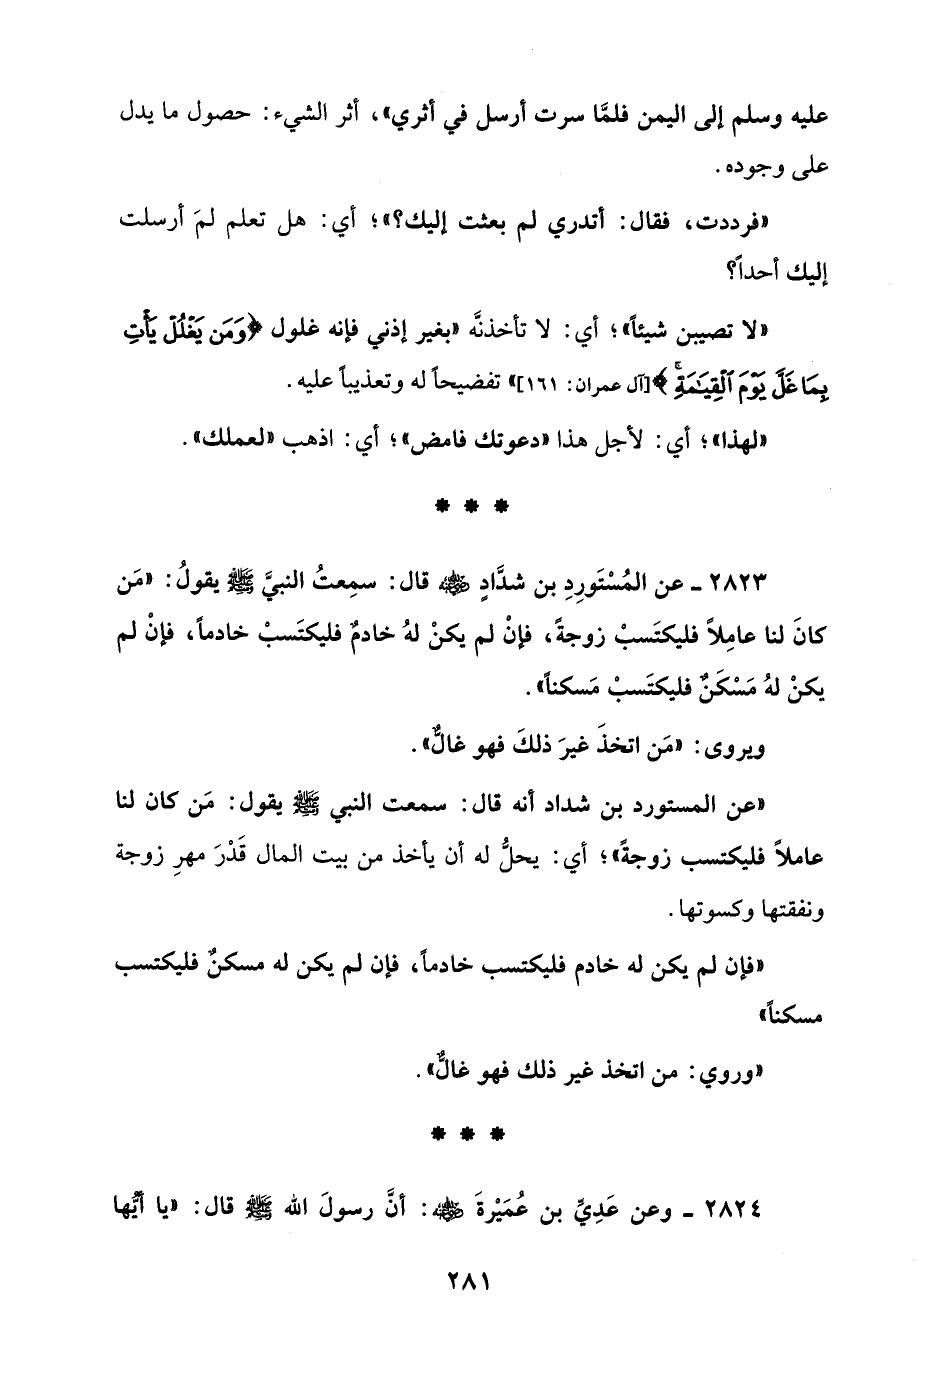 عليه وسلم إلى اليمن فلمَّا سرت أرسل في أثري»، أثر الشيء: حصول ما يدل
على وجوده.
«فرددت، فقال: أتدري لم بعثت إليك؟»؛ أي: هل تعلم لمَ أرسلت
إليك أحداً؟
«لا تصيبن شيئاً»؛ أي: لا تأخذنَّه «بغير إذني فإنه غلول ﴿وَمَن يَغْلُلْ يَأْتِ
بِمَا غَلَّ يَوْمَ ٱلْقِيَـٰمَةِۚ﴾[آل عمران: ١٦١]» تفضيحاً له وتعذيباً عليه.
«لهذا»؛ أي: لأجل هذا «دعوتك فامض»؛ أي: اذهب «لعملك».
* * *
٢٨٢٣ ـ عن المُسْتَورِدِ بن شدَّادٍ ﵁ قال: سمِعتُ النبيَّ ﷺ يقولُ: «مَن
كانَ لنا عامِلاً فليكتَسبْ زوجةً، فإنْ لم يكنْ لهُ خادمٌ فليكتَسبْ خادماً، فإنْ لم
يكنْ لهُ مَسْكَنٌ فليكتَسبْ مَسكناً».
ويروى: «مَن اتخذَ غيرَ ذلكَ فهو غالٌّ».
«عن المستورد بن شداد أنه قال: سمعت النبي ﷺ يقول: مَن كان لنا
عاملاً فليكتسب زوجةً»؛ أي: يحلُّ له أن يأخذ من بيت المال قَدْرَ مهرِ زوجة
ونفقتها وكسوتها.
«فإن لم يكن له خادم فليكتسب خادماً، فإن لم يكن له مسكنٌ فليكتسب
مسكناً»
«وروي: من اتخذ غير ذلك فهو غالٌّ».
* * *
٢٨٢٤ ـ وعن عَدِيِّ بن عُمَيْرةَ ﵁: أنَّ رسولَ الله ﷺ قال: «يا أيُّها
٢٨١